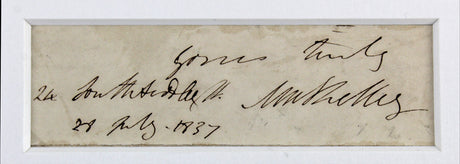 Yours truly
24 South Audley St. MWShelley
28 July. 1837